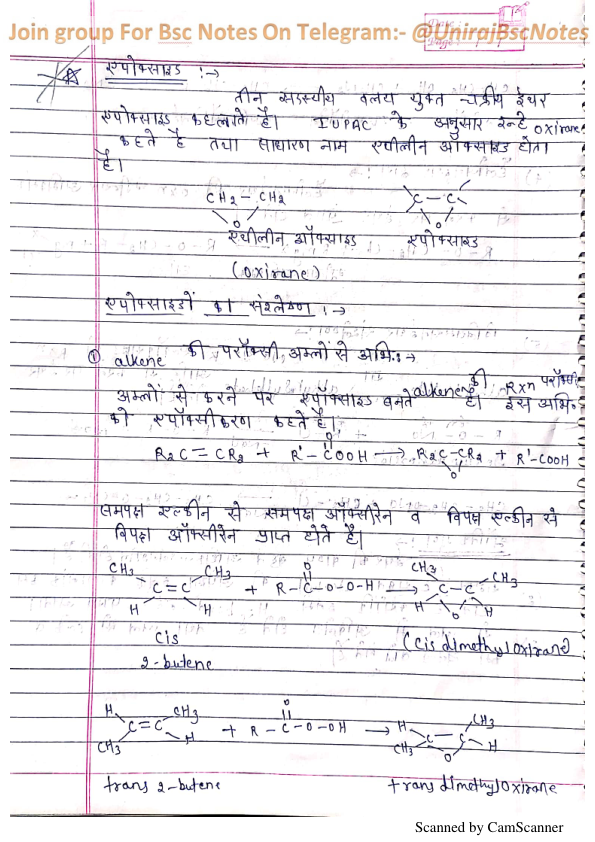 Join group For Bsc Notes On Telegram:- @UnirajBscNotes
Date
Page
एपोक्साइड :→
तीन सदस्यीय वलय युक्त चक्रीय ईथर
एपोक्साइड कहलाते है। IUPAC के अनुसार इन्हे oxirane
कहते है तथा साधारण नाम एथीलीन ऑक्साइड होता
है।
CH2 – CH2
O
C – C
O
एथीलीन ऑक्साइड एपोक्साइड
(oxirane)
एपोक्साइडों का संश्लेषण :→
① alkene की परॉक्सी अम्लों से अभि:→
alkene की Rxn परॉक्सी
अम्लों से करने पर एपॉक्साइड बनते है। इस अभि॰
को एपॉक्सीकरण कहते है।
O
R2C = CR2 + R'– COOH → R2C–CR2 + R'-COOH
O
समपक्ष एल्कीन से समपक्ष ऑक्सीरेन व विपक्ष एल्कीन से
विपक्ष ऑक्सीरेन प्राप्त होते है।
CH3 CH3 O CH3 CH3
C = C + R – C – O – O – H → C – C
H H H O H
cis (cis dimethyl oxirane)
2-butene
H CH3 O H CH3
C = C + R – C – O – OH → C – C
CH3 H CH3 O H
trans 2-butene trans dimethyl oxirane
Scanned by CamScanner